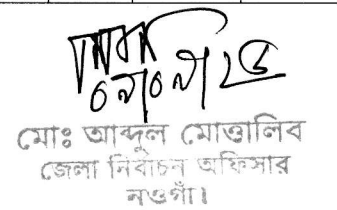 ০৭/০৭/২৫
মোঃ আব্দুল মোত্তালিব
জেলা নির্বাচন অফিসার
নওগাঁ।